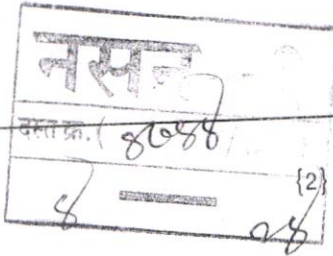 नसन
दस्त क्र. ( ४७४४ /
{2}
४ — २४